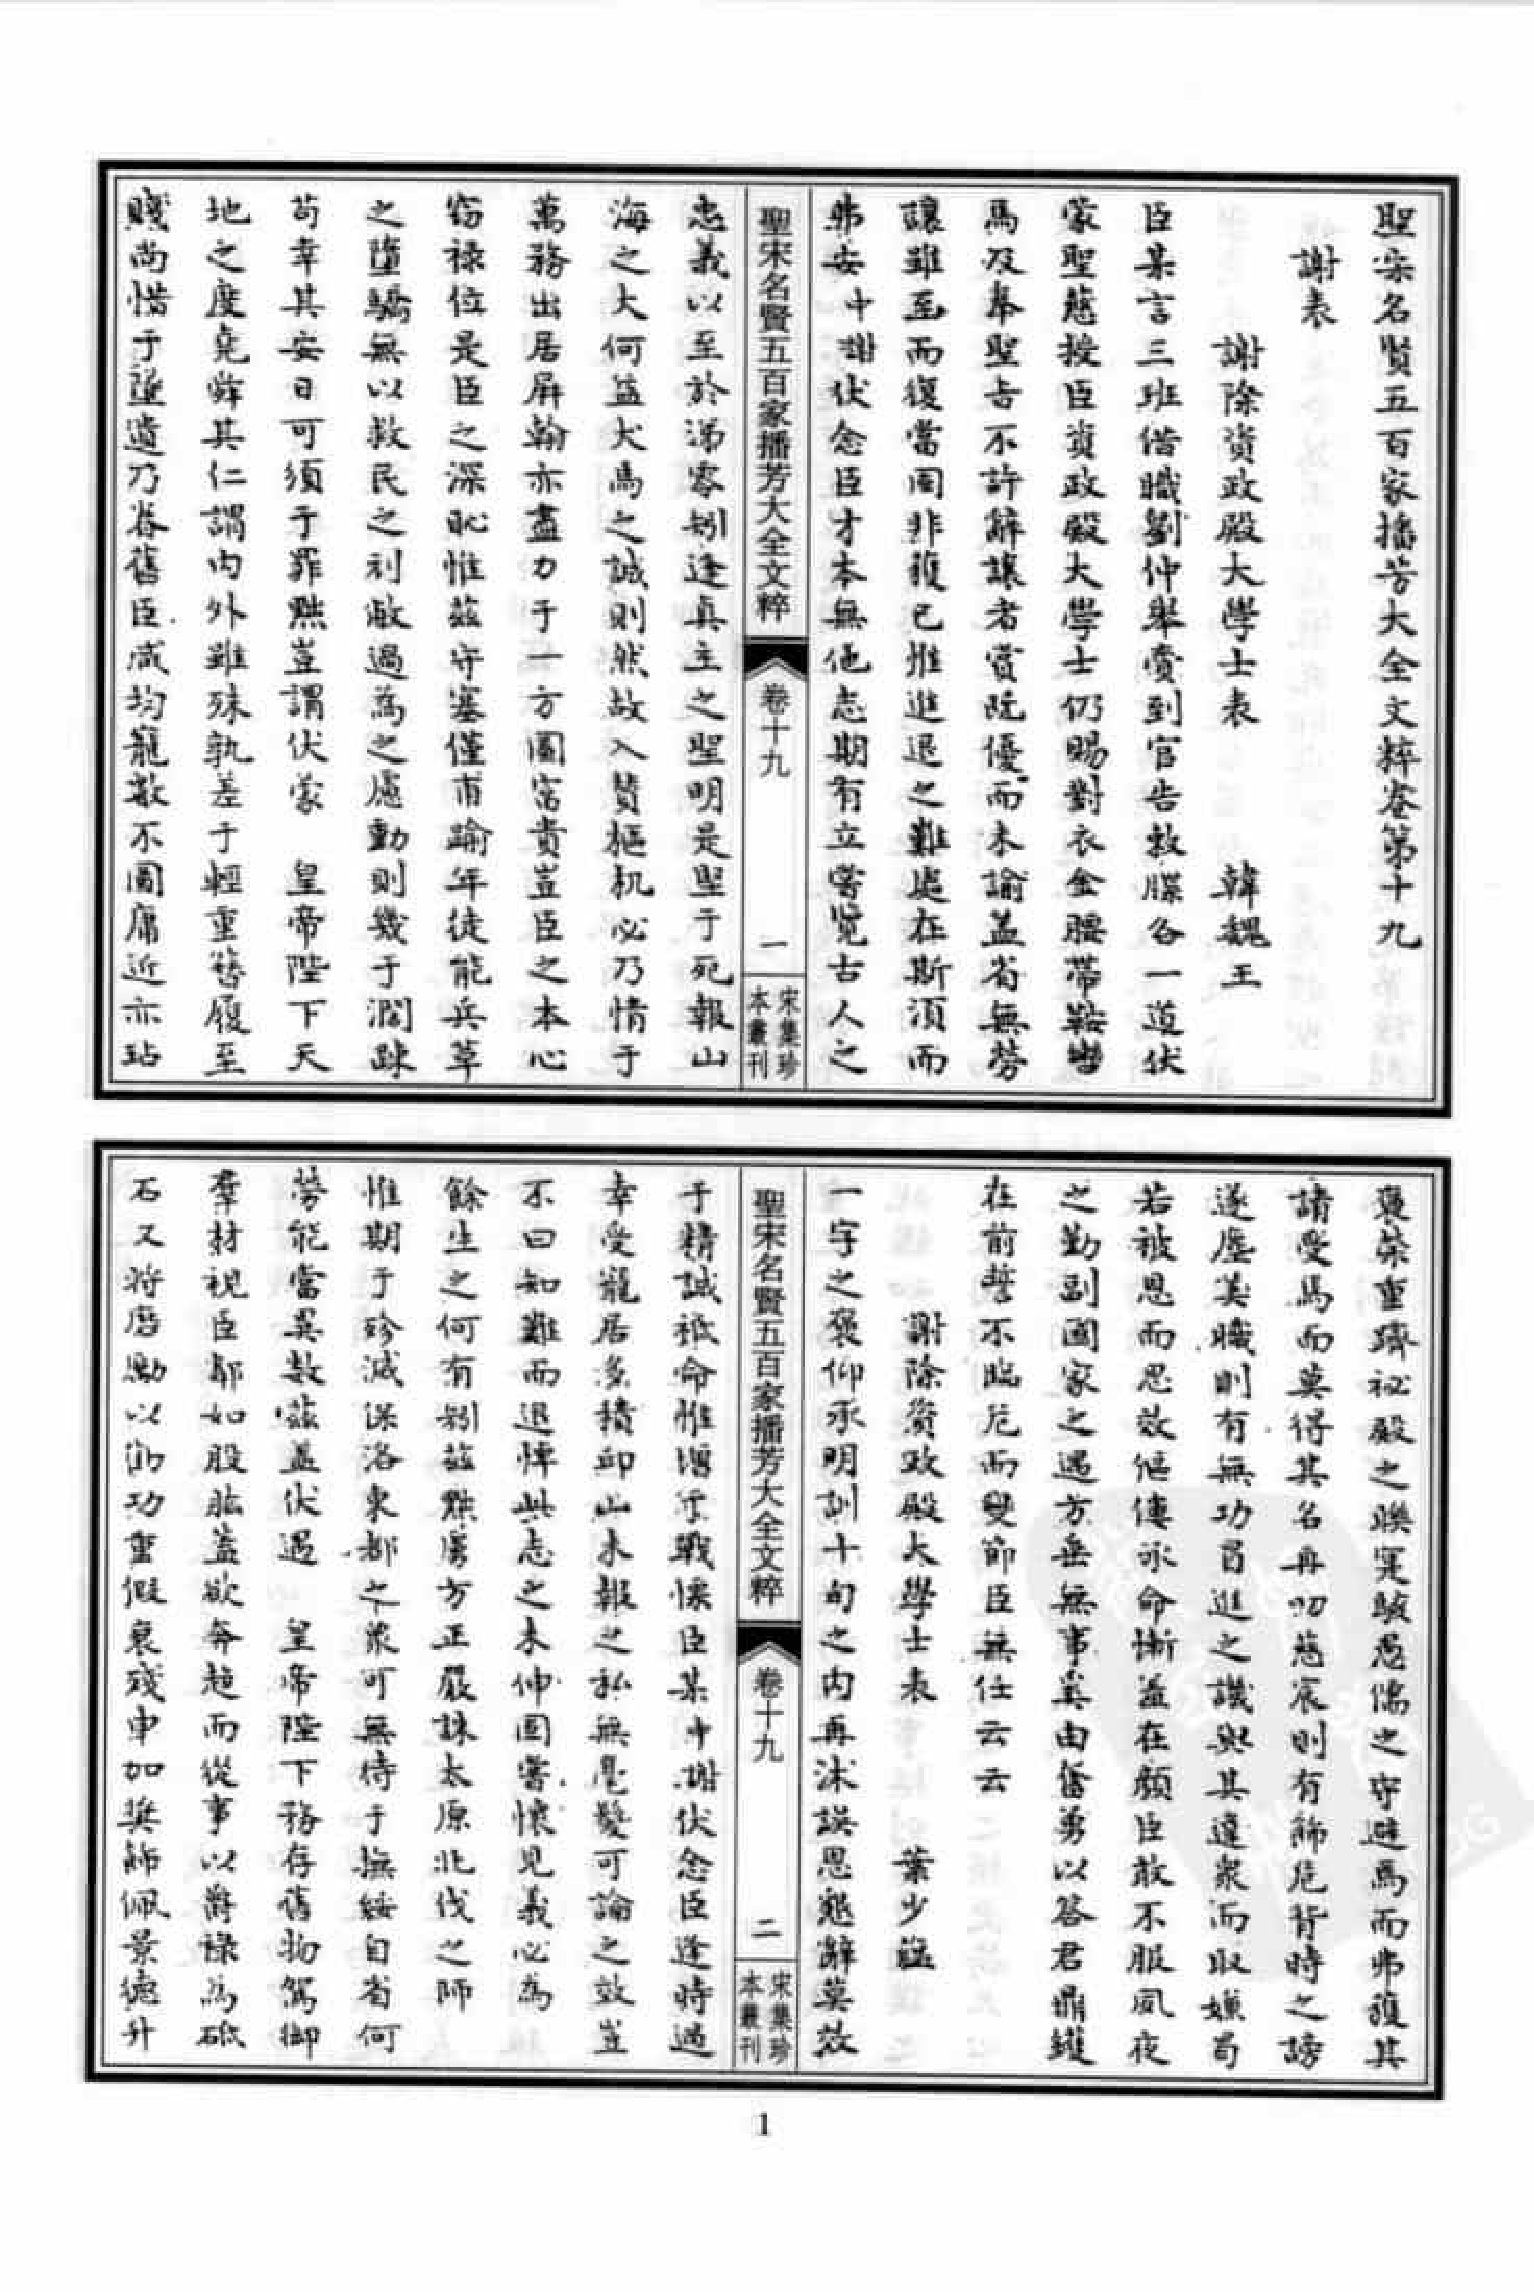 聖宋名賢五百家播芳大全文粹卷第十九
謝表
謝除資政殿大學士表 韓魏王
臣某言三班借職劉仲舉賫到官告敕牒各一道伏
蒙聖慈授臣資政殿大學士仍賜對衣金腰帶鞍轡
馬及奉聖旨不許辭讓者賞既優而未諭蓋省無勞
讓雖至而復當固非獲已惟進退之難處在斯須而
弗安 中謝 伏念臣才本無他志期有立嘗覽古人之
聖宋名賢五百家播芳大全文粹 卷十九 一 宋集珍本叢刊
忠義以至於涕零矧逢真主之聖明是堅于死報山
海之大何益犬馬之誠則然故入贊樞机必乃情于
萬務出居屏翰亦盡力于一方圖富貴豈臣之本心
竊祿位是臣之深恥惟茲守塞僅甫踰年徒能兵草
之墮驕無以救民之利敝過為之慮動則幾于濶踈
苟幸其安日可須于罪黜豈謂伏蒙 皇帝陛下天
地之度堯舜其仁謂內外雖殊孰差于輕重簪履至
賤尚惜于遺乃眷舊臣咸均寵敘不圖庸近亦玷
褒榮重躋祕殿之聯寔駭愚儒之守避馬而弗獲其
請受馬而莫得其名再叨慈宸則有飾詐背時之謗
遂塵美職則有無功苟進之譏與其違衆而取嫌苟
若被恩而思效傴僂承命慚溢在顏臣敢不服夙夜
之勤副國家之遇方垂無事莫由奮勇以答君鼎鑊
在前誓不臨危而變節臣無任云云
謝除資政殿大學士表 葉少蘊
一字之褒仰承明訓十旬之内再沐誤恩懇辭莫效
聖宋名賢五百家播芳大全文粹 卷十九 二 宋集珍本叢刊
于精誠祗命惟增于戰慄臣某 中謝 伏念臣逢時過
幸受寵居多積邱山未報之私無毫髮可論之效豈
不曰知難而退惟此志之未伸固嘗懷見義必為
餘生之何有矧茲黠虜方正嚴誅太原北伐之師
惟期于殄滅保洛東都之衆可無待于撫綏自省何
勞能當異數茲蓋伏遇 皇帝陛下務存舊物駕御
羣材視臣鄰如股肱蓋欲奔趨而從事以爵祿為砥
石又將磨勵以勸功重假衰殘申加奬飾佩景德升